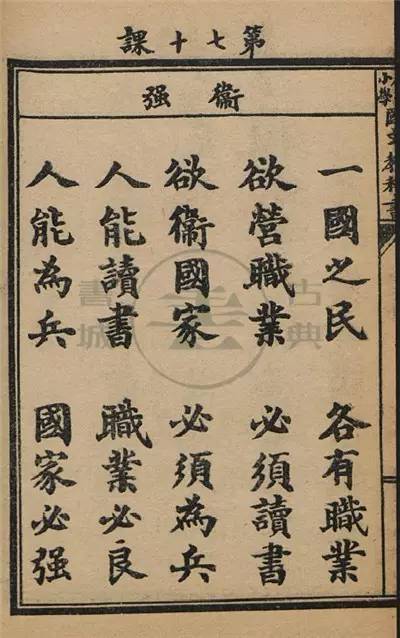 第七十課
衞强
一國之民　各有職業
欲營職業　必須讀書
欲衞國家　必須為兵
人能讀書　職業必良
人能為兵　國家必强
小學國文教科書
古典書城